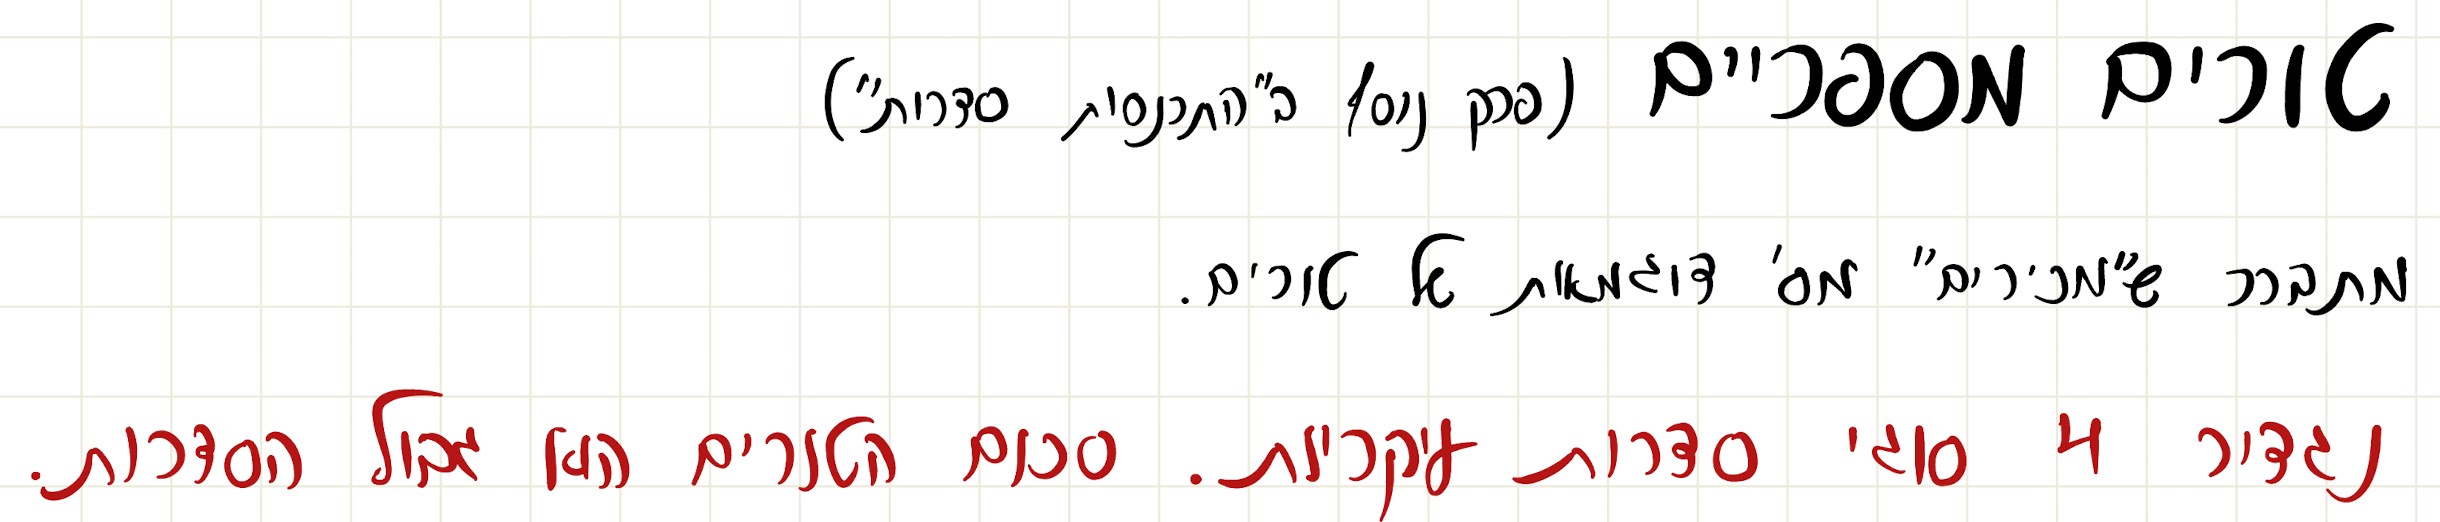 טורים מספריים (פרק נוסף ב"התכנסות סדרות")
מתברר ש"מכירים" מס' דוגמאות של טורים.
נגדיר 4 סוגי סדרות עיקריות. סכום הטורים הוא גבול הסדרות.